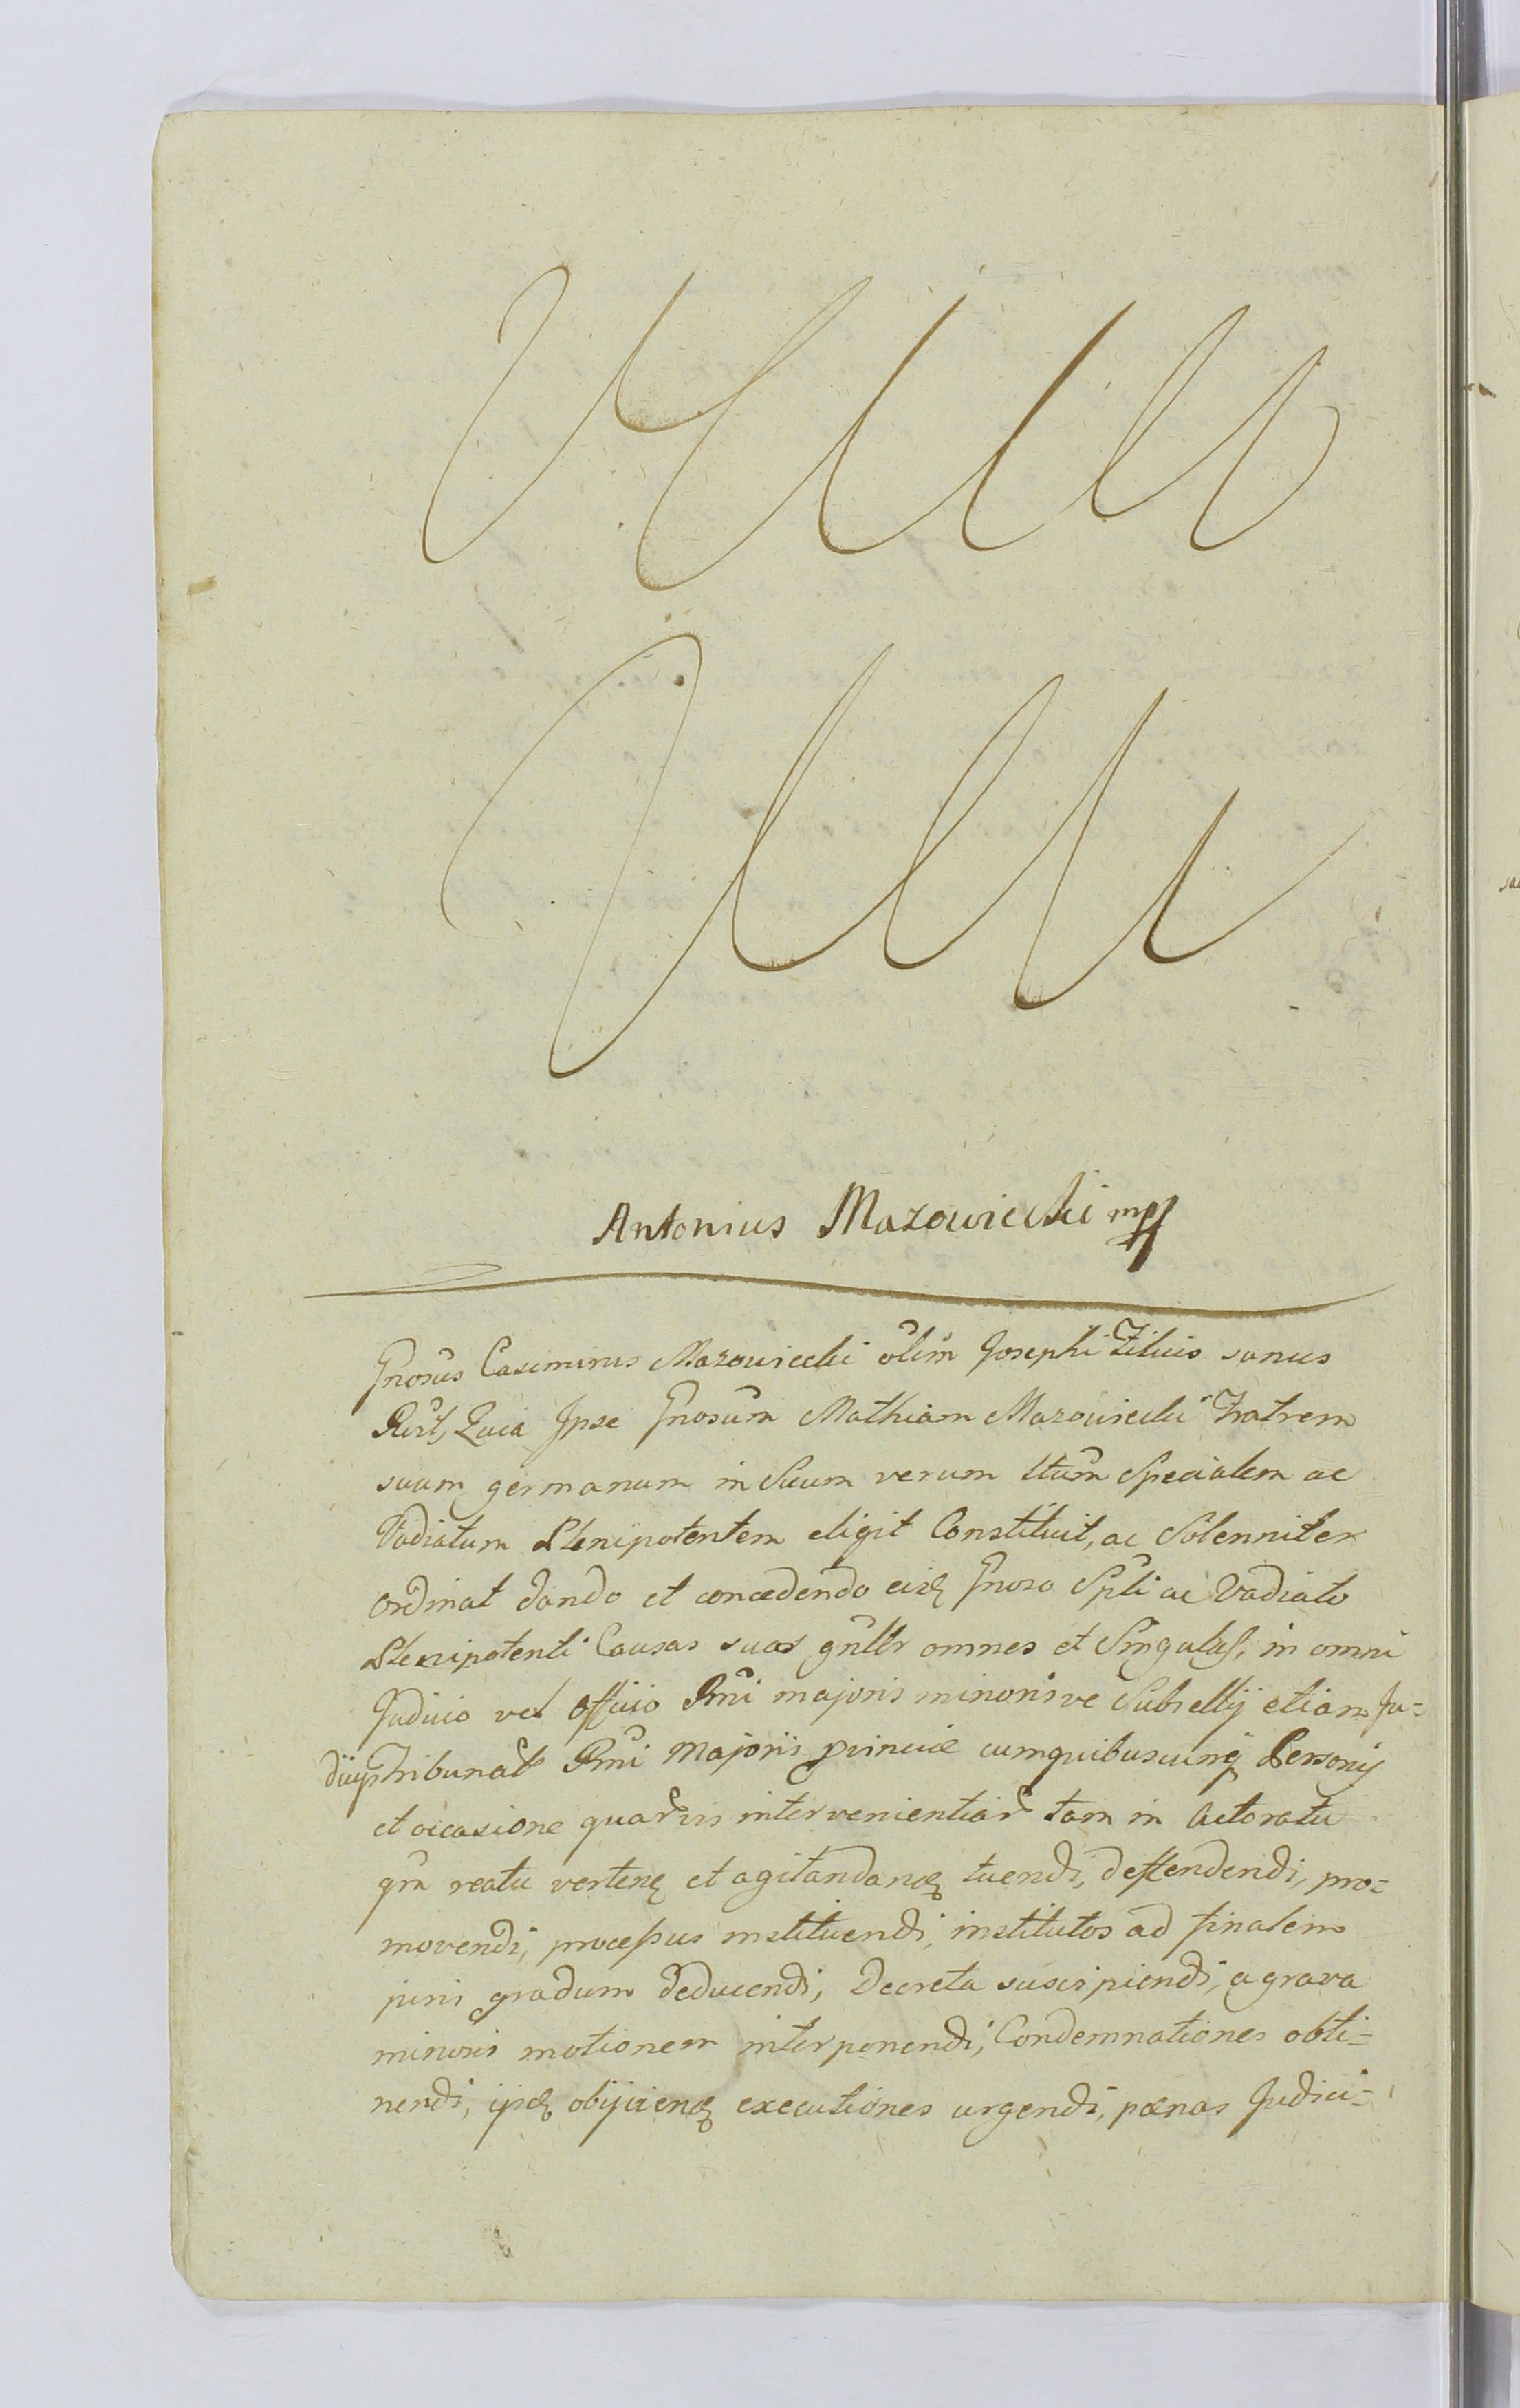 Antonius Mazowiecki mp
Gnosus Casimirus Mazowiecki olim Josephi Filius sanus
Rert, Quia Ipse Gnosum Mathiam Mazowiecki Fratrem
suum germanum in Suum verum Ltum Specialem ac
Vadiatum Plenipotentem eligit Constituit, ac Solenniter
ordinat dando et concedendo eidę Gnoso Spli ac Vadiato
Plenipotenti Causas suas gnltr omnes et Singulas, in omni
Judicio vel Officio Rni majoris minorisve Subsellij etiam Ju-
dicijs Tribunalt Rni Majoris princiae cumquibuscunq Personis
et occasione quarvis intervenientiar tam in Actoratu
qm reatu verten et agitandan tuendi, deffendendi, pro-
movendi, processus instituendi, institutos ad finalem
juris gradum deducendi, Decreta suscipiendi, a grava
minoris motionem interponendi, Condemnationes obti-
nendi, obijcien executiones urgendi, pœnas Judici-